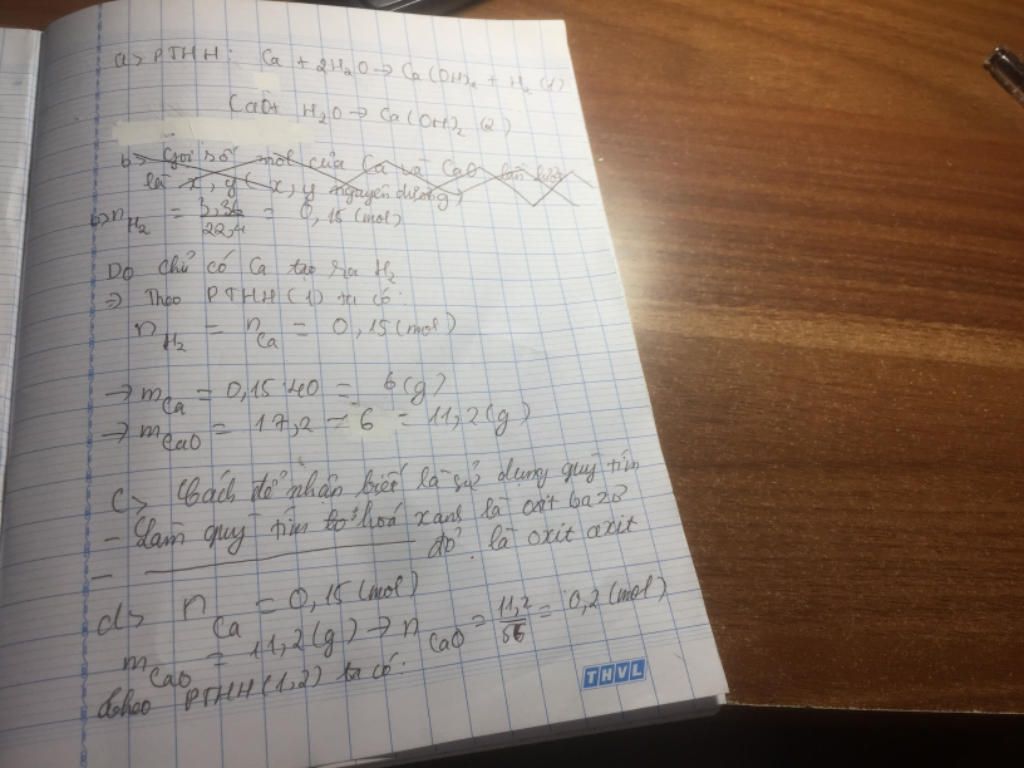 a> PTHH: Ca + 2H₂O → Ca(OH)₂ + H₂ (1)
CaO + H₂O → Ca(OH)₂ (2)
b> Gọi số mol của Ca và CaO lần lượt
là x, y (x, y nguyên dương)
b> n_H₂ = 3,36/22,4 = 0,15 (mol)
Do chỉ có Ca tạo ra H₂
⇒ Theo PTHH (1) ta có:
n_H₂ = n_Ca = 0,15 (mol)
→ m_Ca = 0,15 . 40 = 6 (g)
→ m_CaO = 17,2 - 6 = 11,2 (g)
C> Cách để nhận biết là sử dung quỳ tím
- Làm quỳ tím hoá xanh là oxit bazơ
- ———— đỏ là oxit axit
d> n_Ca = 0,15 (mol)
m_CaO = 11,2 (g) → n_CaO = 11,2/56 = 0,2 (mol)
theo PTHH (1,2) ta có:
THVL